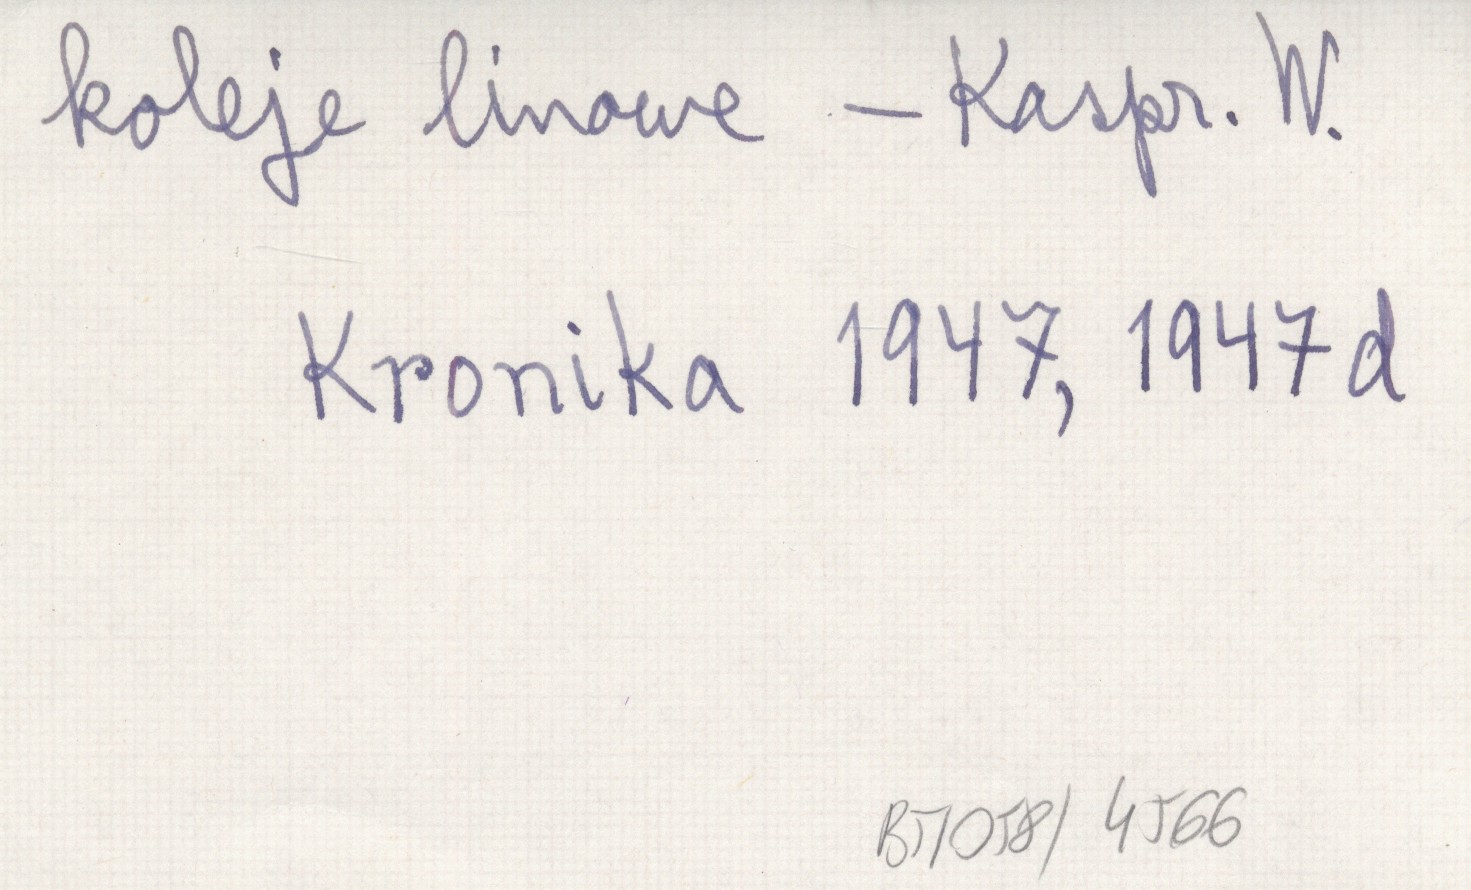 koleje linowe – Kaspr. W.
Kronika 1947, 1947d
4566